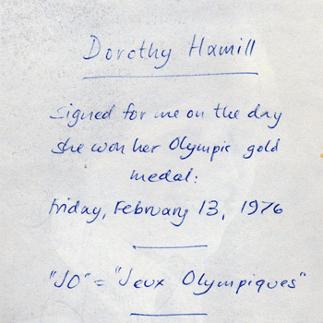 Dorothy Hamill
Signed for me on the day
she won her Olympic gold
medal:
Friday, February 13, 1976
"JO" = "Jeux Olympiques"